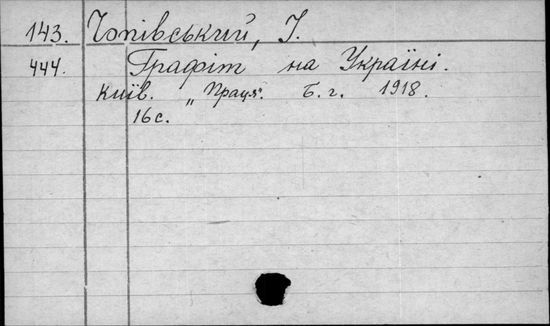 143. Чопівський, І.
444. Графіт на Україні.
Київ. „Праця". Б. г. 1918.
16 с.